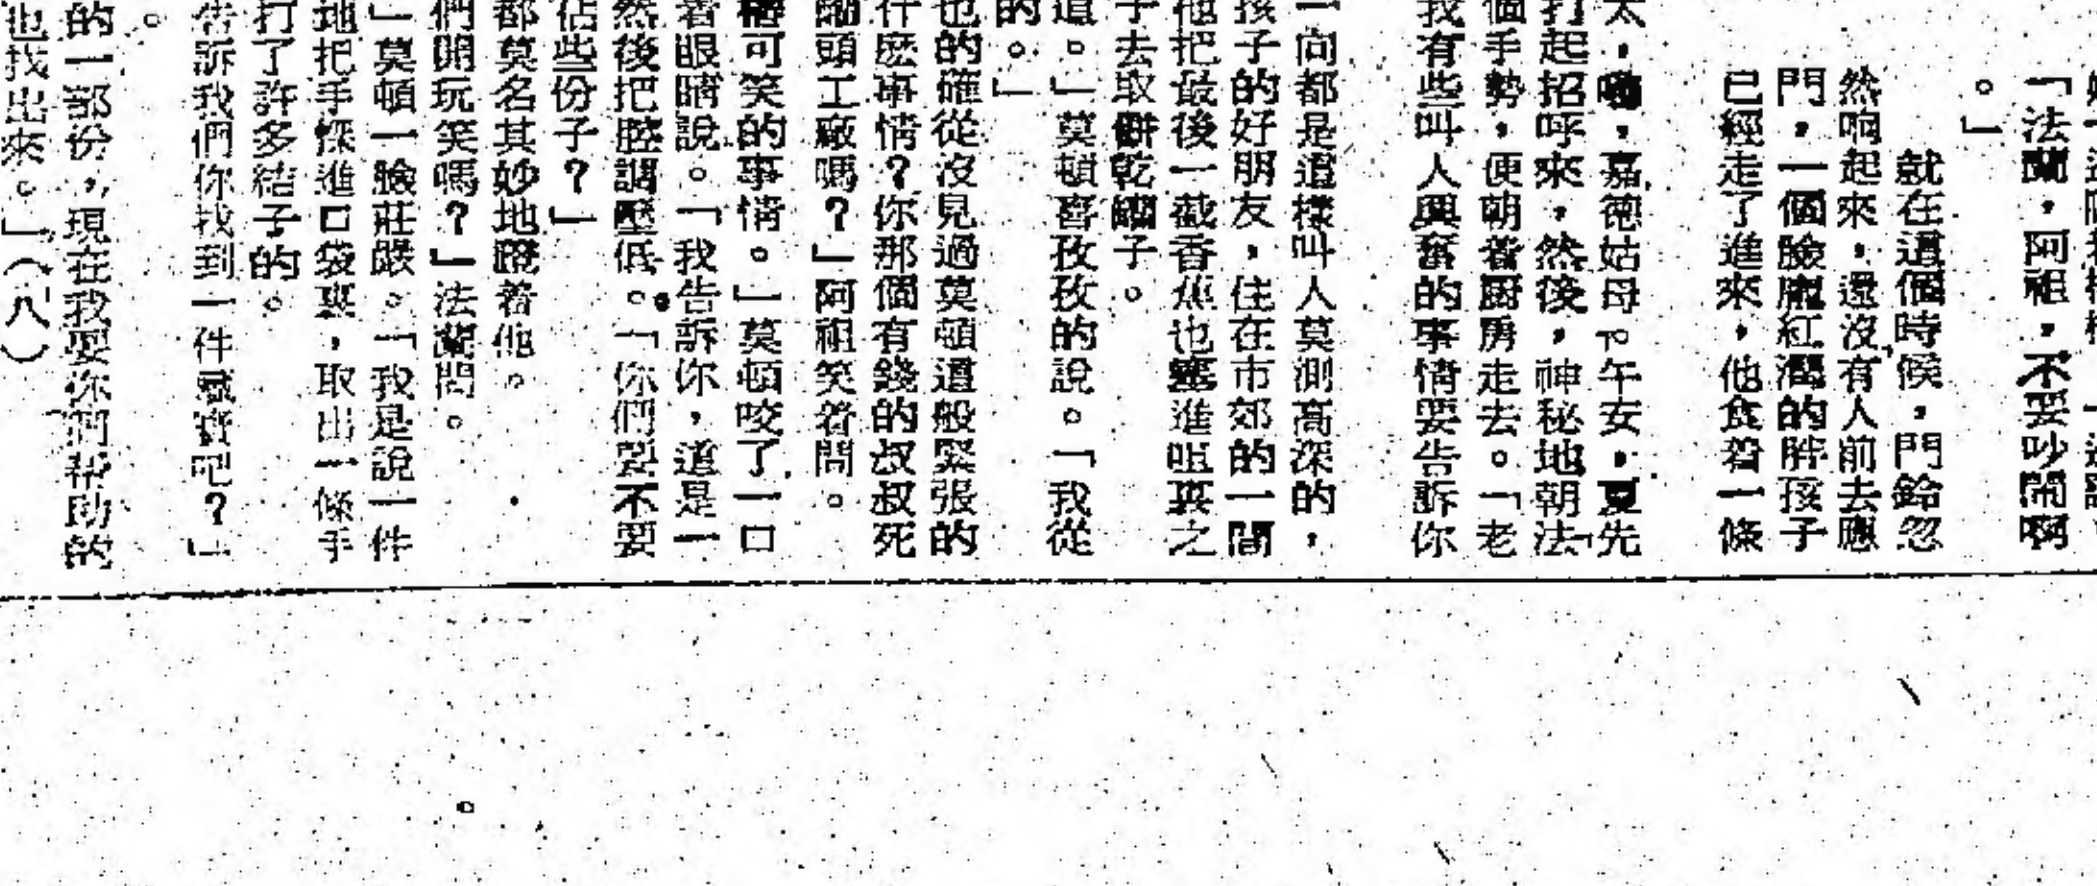 「法蘭，阿祖，不要吵鬧啊
。」
就在這個時候，門鈴忽
然响起來，還沒有人前去應
門，一個臉龐紅潤的胖孩子
已經走了進來，他食着一條
太，嘉德姑母下午安，夏先
打起招呼來，然後，神秘地朝法
個手勢，便朝着厨房走去。「老
我有些叫人興奮的事情要告訴你
一向都是這樣叫人莫測高深的，
孩子的好朋友，住在市郊的一間
他把最後一截香蕉也塞進咀裏之
子去取餅乾罐子。
道。」莫頓喜孜孜的說。「我從
的。」
也的確從沒見過莫頓這般緊張的
什麽事情？你那個有錢的叔叔死
罐頭工廠嗎？」阿祖笑着問。
可笑的事情。」莫頓咬了一口
着眼睛說。「我告訴你，這是一
然後把腔調壓低。「你們要不要
佔些份子？」
都莫名其妙地瞪着他。
們開玩笑嗎？」法蘭問。
」莫頓一臉莊嚴。「我是說一件
地把手探進口袋裏，取出一條手
打了許多結子的。
告訴我們你找到一件藏寶吧？」
。
的一部份，現在我要你們帮助的
也找出來。」（八）